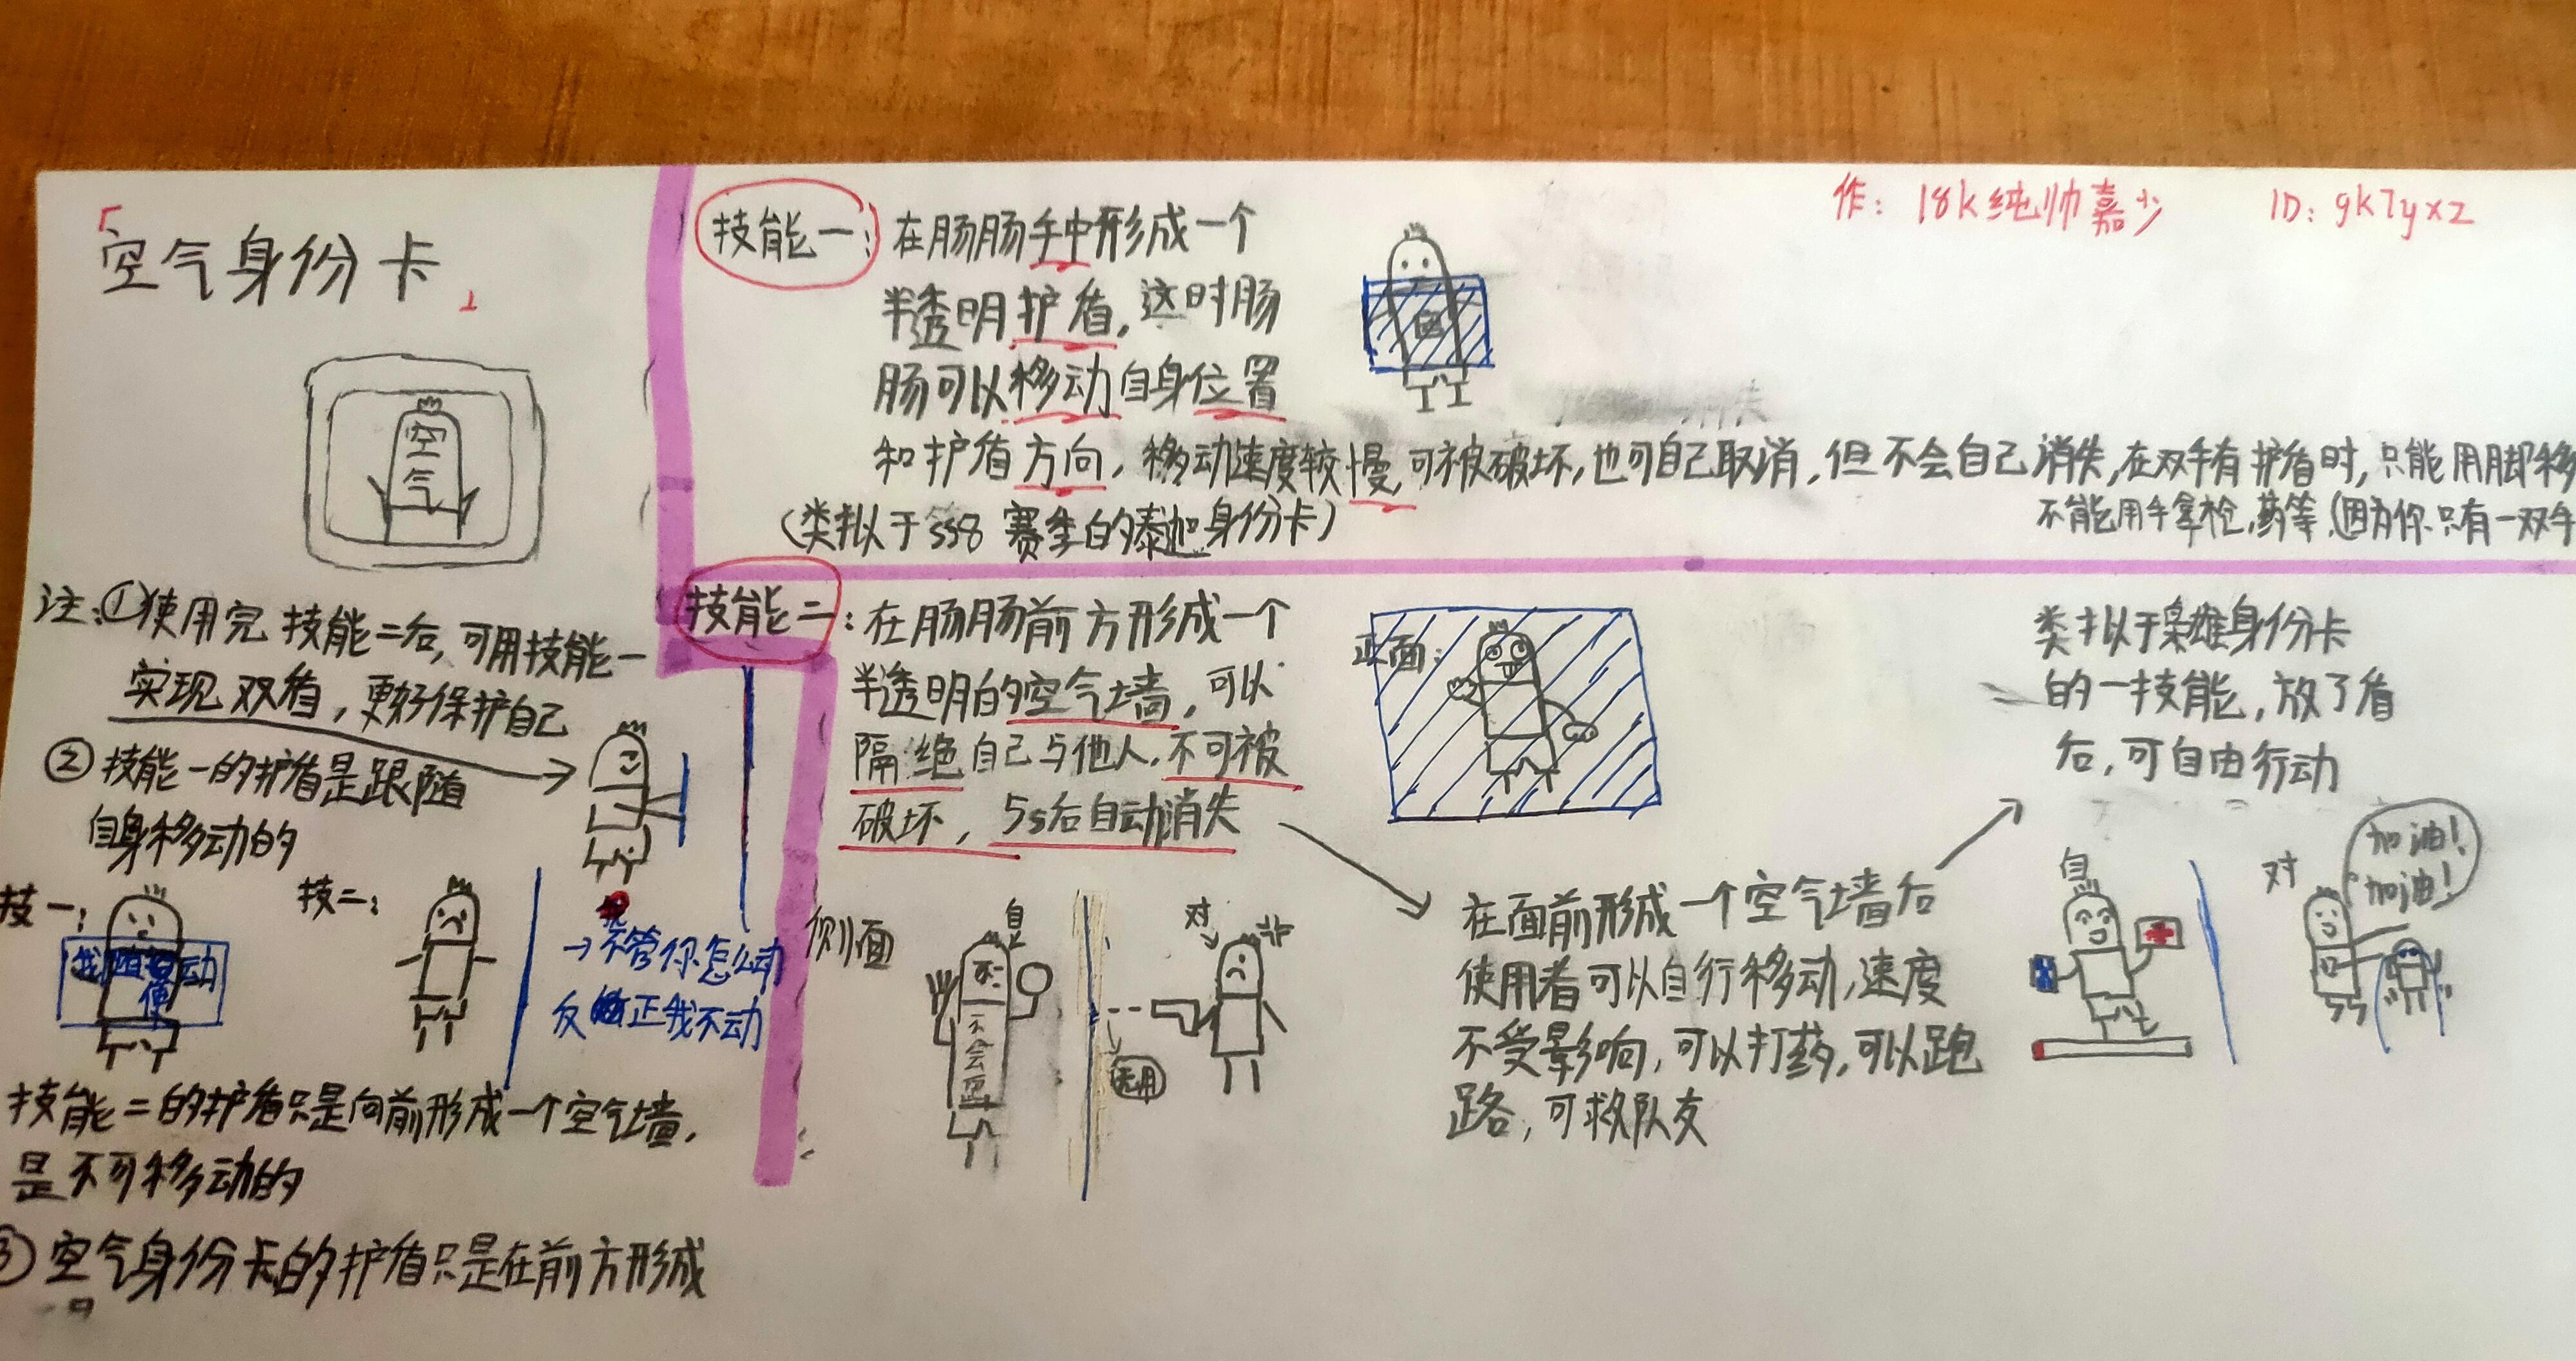 「空气身份卡」
空
气
注:①使用完技能二后,可用技能一
实现双盾,更好保护自己
②技能一的护盾是跟随
自身移动的
技一:
我随便动
技二:
→不管你怎么动
反正我不动
技能二的护盾只是向前形成一个空气墙,
是不可移动的
③空气身份卡的护盾只是在前方形成
作:18k纯帅嘉少 ID:gk7yxz
技能一:在肠肠手中形成一个
半透明护盾,这时肠
肠可以移动自身位置
和护盾方向,移动速度较慢,可被破坏,也可自己取消,但不会自己消失,在双手有护盾时,只能用脚移
不能用手拿枪,药等(因为你只有一双手
(类拟于SS8赛季的泰迦身份卡)
技能二:在肠肠前方形成一个
半透明的空气墙,可以
隔绝自己与他人,不可被
破坏,5s后自动消失
正面:
侧面
自
不会
对
无用
在面前形成一个空气墙后
使用者可以自行移动,速度
不受影响,可以打药,可以跑
路,可救队友
类拟于枭雄身份卡
的一技能,放了盾
后,可自由行动
自
对
加油!
加油!